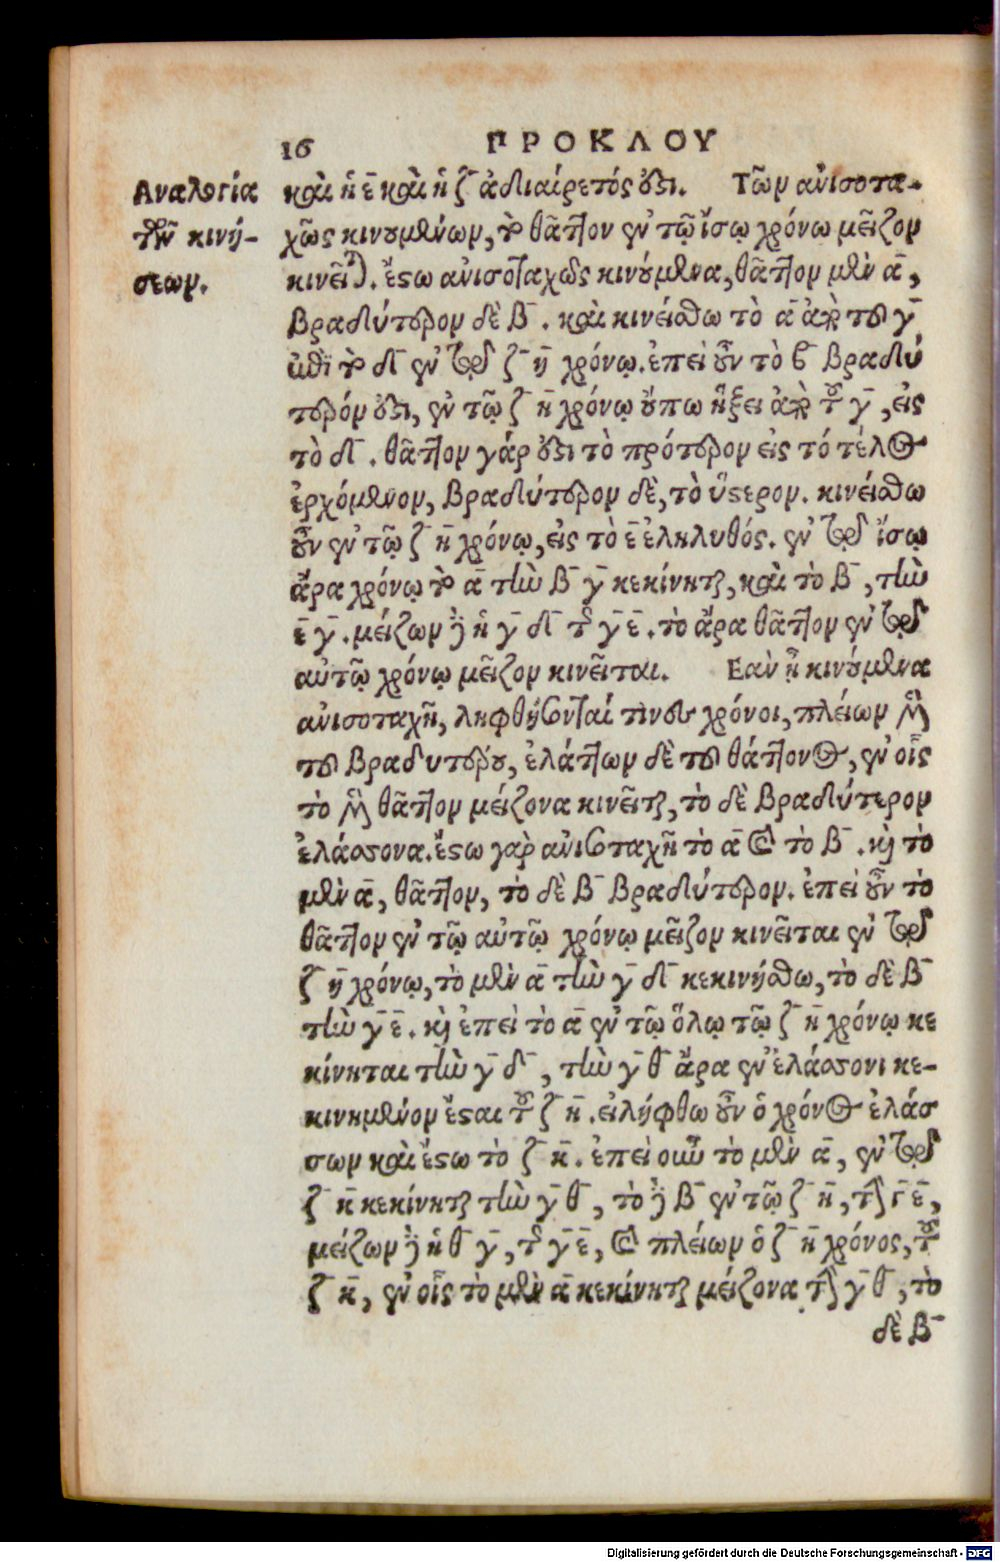 16 ΠΡΟΚΛΟΥ
Αναλογία
τῶν κινή-
σεων.
καὶ ἡ ε̄ καὶ ἡ ζ̄ ἀδιαίρετός ὅστι. Τῶν ἀνισοτα-
χῶς κινουμένων, τὸ θᾶττον ἐν τῷ ἴσῳ χρόνῳ μεῖζον
κινεῖται. ἔστω ἀνισοταχῶς κινούμενα, θᾶττον μὲν ᾱ,
βραδύτερον δὲ β̄. καὶ κινείσθω τὸ ᾱ ἀπὸ τοῦ γ̄
ἐπὶ τὸ δ̄ ἐν τῷ ζ̄ η̄ χρόνῳ. ἐπεὶ οὖν τὸ β̄ βραδύ
τερόν ἐστι, ἐν τῷ ζ̄ η̄ χρόνῳ οὔπω ἥξει ἀπὸ τοῦ γ̄, εἰς
τὸ δ̄. θᾶττον γάρ ἐστι τὸ πρότερον εἰς τό τέλος
ἐρχόμενον, βραδύτερον δὲ, τὸ ὕστερον. κινείσθω
οὖν ἐν τῷ ζ̄ η̄ χρόνῳ, εἰς τὸ ε̄ ἐληλυθός. ἐν τῷ ἴσῳ
ἄρα χρόνῳ τὸ ᾱ τὴν β̄ γ̄ κεκίνηται, καὶ τὸ β̄, τὴν
ε̄ γ̄. μείζων δὲ ἡ γ̄ δ̄ τῆς γ̄ ε̄. τὸ ἄρα θᾶττον ἐν τῷ
αὐτῷ χρόνῳ μεῖζον κινεῖται. Εαὶ ᾖ κινούμενα
ἀνισοταχῆ, ληφθήσονταί τινες χρόνοι, πλείων μὲν
τοῦ βραδυτέρου, ἐλάττων δὲ τοῦ θάττονος, ἐν οἷς
τὸ μὲν θᾶττον μείζονα κινεῖται, τὸ δὲ βραδύτερον
ἐλάσσονα. ἔστω γὰρ ἀνισοταχῆ τὸ ᾱ καὶ τὸ β̄. καὶ τὸ
μὲν ᾱ, θᾶττον, τὸ δὲ β̄ βραδύτερον. ἐπεὶ οὖν τὸ
θᾶττον ἐν τῷ αὐτῷ χρόνῳ μεῖζον κινεῖται ἐν τῷ
ζ̄ η̄ χρόνῳ, τὸ μὲν ᾱ τὴν γ̄ δ̄ κεκινήσθω, τὸ δὲ β̄
τὴν γ̄ ε̄. καὶ ἐπεὶ τὸ ᾱ ἐν τῷ ὅλῳ τῷ ζ̄ η̄ χρόνῳ κε
κίνηται τὴν γ̄ δ̄, τὴν γ̄ θ̄ ἄρα ἐν ἐλάσσονι κε-
κινημένον ἔσται τοῦ ζ̄ η̄. εἰλήφθω οὖν ὁ χρόνος ἐλάσ
σων καὶ ἔστω τὸ ζ̄ κ̄. ἐπεὶ οὖν τὸ μὲν ᾱ, ἐν τῷ
ζ̄ κ̄ κεκίνηται τὴν γ̄ θ̄, τὸ δὲ β̄ ἐν τῷ ζ̄ η̄, τὴν γ̄ ε̄,
μείζων δὲ ἡ θ̄ γ̄, τῆς γ̄ ε̄, καὶ πλείων ὁ ζ̄ η̄ χρόνος, τοῦ
ζ̄ κ̄, ἐν οἷς τὸ μὲν ᾱ κεκίνηται μείζονα τὴν γ̄ θ̄, τὸ
δὲ β̄
Digitalisierung gefördert durch die Deutsche Forschungsgemeinschaft - DFG